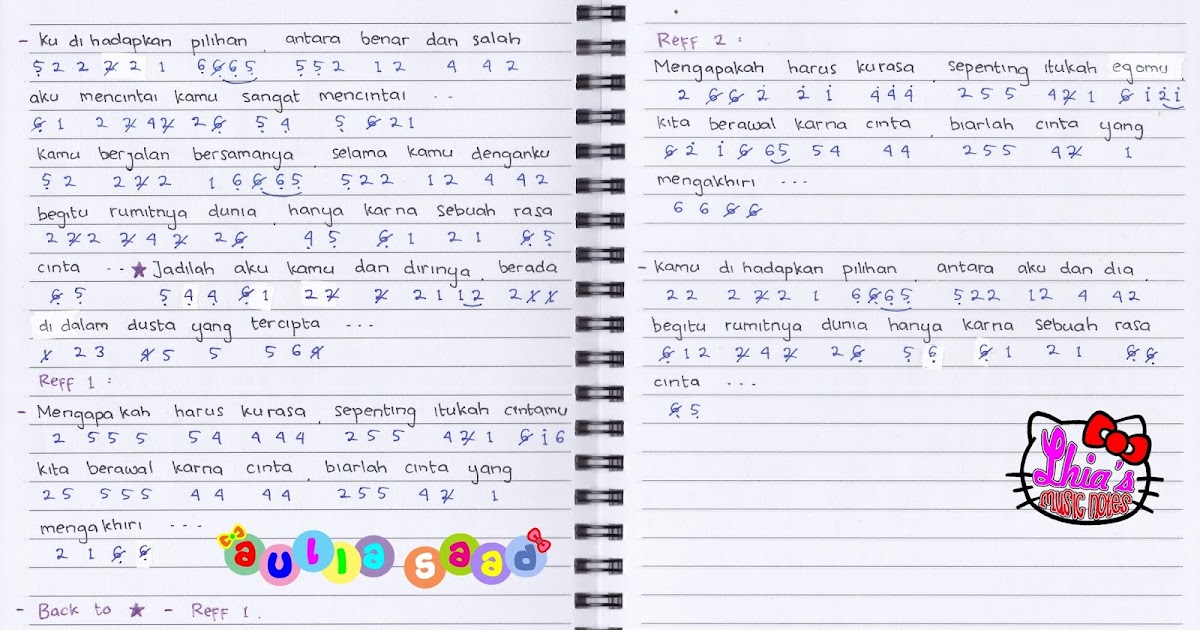 - Ku di hadapkan pilihan, antara benar dan salah
5̣ 2 2 2̸ 2 1 6̣ 6̸̣ 6̣ 5̣ 5̣ 5̣ 2 1 2 4 4 2
aku mencintai kamu sangat mencintai ...
6̸̣ 1 2 2̸ 4 2̸ 2 6̸̣ 5̣ 4̣ 5̣ 6̸̣ 2 1
kamu berjalan bersamanya, selama kamu denganku
5̣ 2 2 2̸ 2 1 6̣ 6̸̣ 6̣ 5̣ 5̣ 2 2 1 2 4 4 2
begitu rumitnya dunia, hanya karna sebuah rasa
2 2̸ 2 2̸ 4 2̸ 2 6̸̣ 4̣ 5̣ 6̸̣ 1 2 1 6̸̣ 5̣
cinta ... ★ Jadilah aku kamu dan dirinya, berada
6̸̣ 5̣ 5̣ 4̣ 4̣ 6̸̣ 1 2 2̸ 2̸ 2 1 1 2 2 1̸ 1̸
di dalam dusta yang tercipta ...
1̸ 2 3 4̸ 5 5 5 6 4̸
Reff 1 :
- Mengapa kah harus kurasa, sepenting itukah cintamu
2 5 5 5 5 4 4 4 4 2 5 5 4 2̸ 1 6̸ 1̇ 6
kita berawal karna cinta, biarlah cinta yang
2 5 5 5 5 4 4 4 4 2 5 5 4 2̸ 1
mengakhiri ...
2 1 6̸̣ 6̸̣
aulia saad
- Back to ★ - Reff 1.
Reff 2 :
Mengapakah harus kurasa, sepenting itukah egomu
2 6̸ 6̸ 2̇ 2̇ 1̇ 4̇ 4̇ 4̇ 2 5 5 4 2̸ 1 6̸ 1̇ 2̇ 1̇
kita berawal karna cinta, biarlah cinta yang
6̸ 2̇ 1̇ 6̸ 6 5 5 4 4 4 2 5 5 4 2̸ 1
mengakhiri ...
6 6 6̸̣ 6̸̣
- Kamu di hadapkan pilihan, antara aku dan dia,
2 2 2 2̸ 2 1 6̣ 6̸̣ 6̣ 5̣ 5̣ 2 2 1 2 4 4 2
begitu rumitnya dunia hanya karna sebuah rasa
6̸̣ 1 2 2̸ 4 2̸ 2 6̸̣ 5̣ 6̣ 6̸̣ 1 2 1 6̸̣ 6̸̣
cinta ...
6̸̣ 5̣
Lhia's
music notes